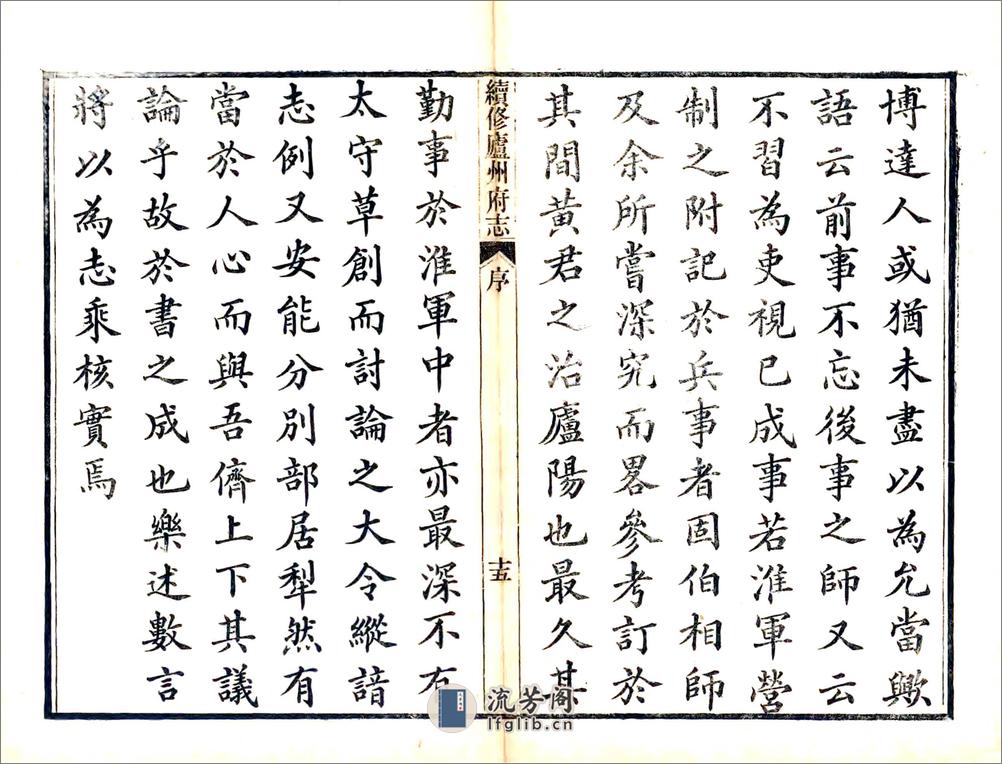 博達人或猶未盡以為允當歟
語云前事不忘後事之師又云
不習為吏視已成事若淮軍營
制之附記於兵事者固伯相師
及余所嘗深究而畧參考訂於
其間黃君之治廬陽也最久其
續修廬州府志
序
十五
勤事於淮軍中者亦最深不有
太守草創而討論之大令縱諳
志例又安能分別部居犁然有
當於人心而與吾儕上下其議
論乎故於書之成也樂述數言
將以為志乘核實焉
流芳阁
lfglib.cn